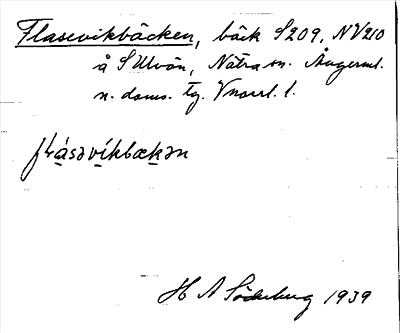 Flasevikbäcken, bäck S209, NV210
å S Ulvön, Nätra sn. Ångerml.
n. doms. tg. Vnorrl. l.
fḷásəvíkbækən
H A Söderberg 1939